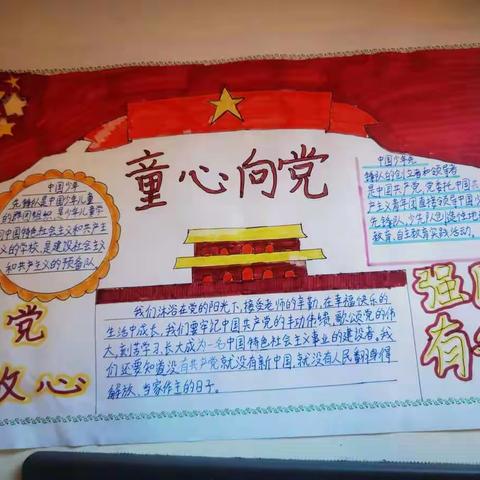 童心向党
中国少年
先锋队是中国少年儿童
的群团组织,是少年儿童学
中国特色社会主义和共产主
义的学校,是建设社会主义
和共产主义的预备队
中国少年先
锋队的创立者和领导者
是中国共产党,党委托中国共
产主义青年团直接领导中国少年
先锋队,少先队创造性地
教育、自主教育实践活动。
我们沐浴在党的阳光下,接受老师的辛勤,在幸福快乐的
生活中成长,我们要牢记中国共产党的丰功伟绩,歌颂党的伟
大,刻苦学习,长大成为一名中国特色社会主义事业的建设者。我
们还要知道没有共产党就没有新中国,就没有人民翻身得
解放、当家作主的日子。
党
心
强
有